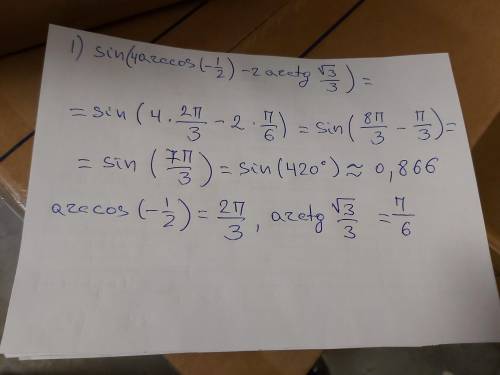 1) sin(4arccos(-1/2) - 2 arctg √3/3) =
= sin(4 · 2π/3 - 2 · π/6) = sin(8π/3 - π/3) =
= sin(7π/3) = sin(420°) ≈ 0,866
arccos(-1/2) = 2π/3, arctg √3/3 = π/6